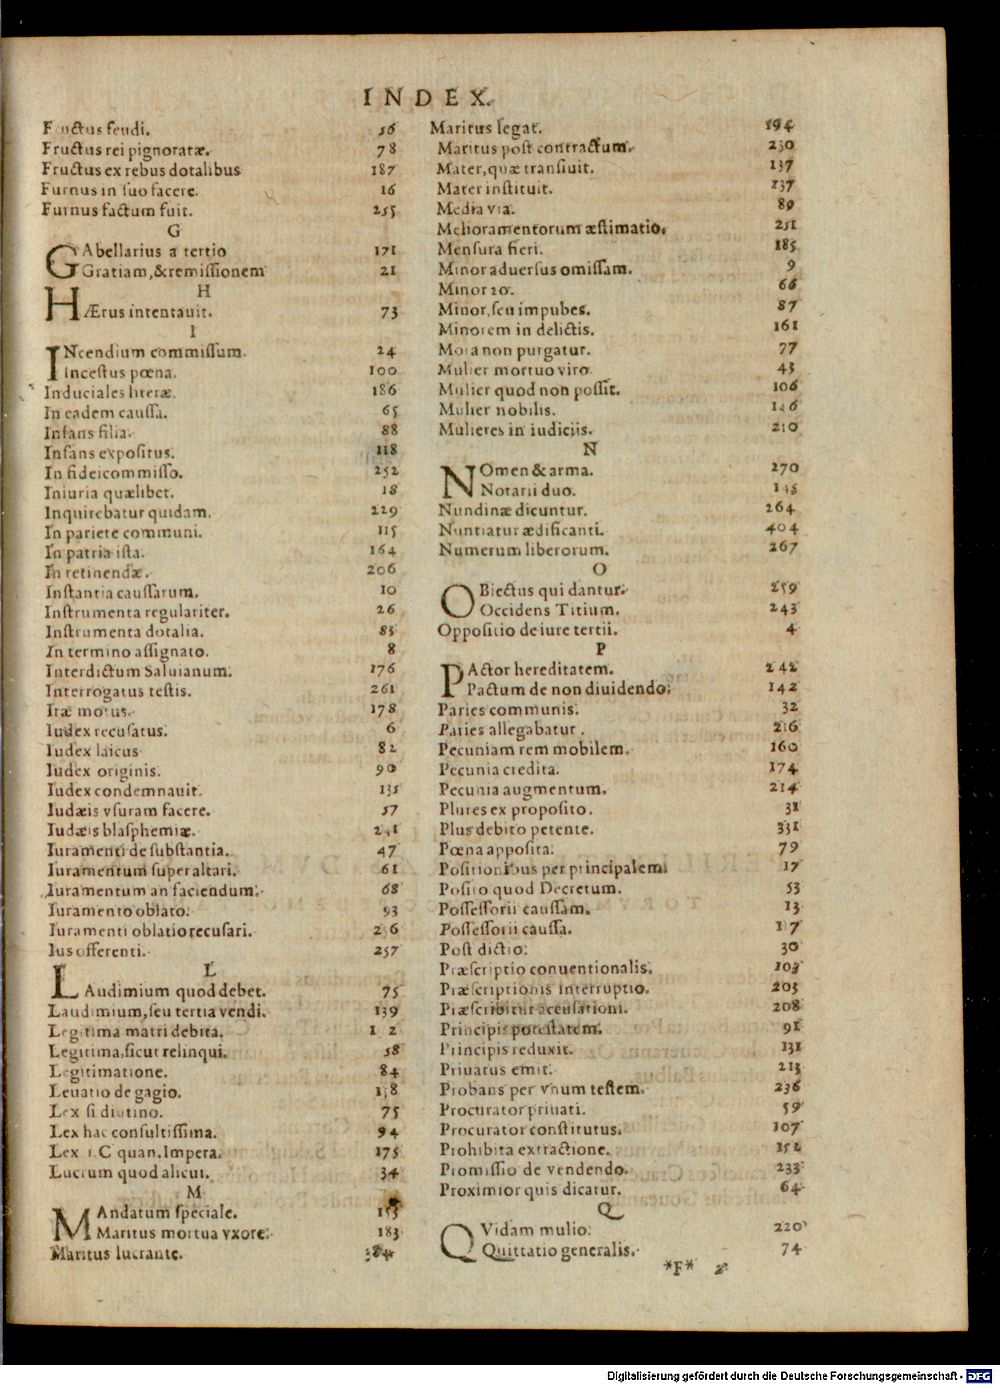 INDEX.
Fructus feudi. 56
Fructus rei pignoratæ. 78
Fructus ex rebus dotalibus 187
Furnus in suo facere. 16
Furnus factum fuit. 255
G
GAbellarius a tertio 171
Gratiam, & remissionem 21
H
HÆrus intentauit. 73
I
INcendium commissum. 24
Incestus pœna. 100
Induciales literæ. 186
In eadem caussa. 65
Infans filia. 88
Infans expositus. 118
In fideicommisso. 252
Iniuria quælibet. 18
Inquirebatur quidam. 229
In pariete communi. 115
In patria ista. 164
In retinendæ. 206
Instantia caussarum. 10
Instrumenta regulariter. 26
Instrumenta dotalia. 83
In termino assignato. 8
Interdictum Saluianum. 176
Interrogatus testis. 261
Iræ motus. 178
Iudex recusatus. 6
Iudex laicus 82
Iudex originis. 90
Iudex condemnauit. 135
Iudæis vsuram facere. 57
Iudæis blasphemiæ.
Iuramenti de substantia. 47
Iuramentum super altari. 61
Iuramentum an faciendum. 68
Iuramento oblato. 93
Iuramenti oblatio recusari.
Ius offerenti. 257
L
LAudimium quod debet. 75
Laudimium, seu tertia vendi. 139
Legitima matri debita.
Legitima, sicut relinqui. 58
Legitimatione. 84
Leuatio de gagio.
Lex si diutino. 75
Lex hac consultissima. 94
Lex 1. C quan. Impera. 175
Lucrum quod alicui. 34
M
MAndatum speciale.
Maritus mortua vxore. 183
Maritus lucrante.
Maritus legat. 194
Maritus post contractum. 230
Mater, quæ transiuit. 137
Mater instituit. 137
Media via. 89
Melioramentorum æstimatio. 251
Mensura fieri. 185
Minor aduersus omissam. 9
Minor 20. 66
Minor, seu impubes. 87
Minorem in delictis. 161
Mora non purgatur. 77
Mulier mortuo viro 43
Mulier quod non possit. 106
Mulier nobilis.
Mulieres in iudiciis. 210
N
NOmen & arma. 270
Notarii duo.
Nundinæ dicuntur. 264
Nuntiatur ædificanti. 404
Numerum liberorum. 267
O
OBiectus qui dantur. 259
Occidens Titium. 243
Oppositio de iure tertii. 4
P
PActor hereditatem. 242
Pactum de non diuidendo. 142
Paries communis. 32
Paries allegabatur. 216
Pecuniam rem mobilem. 160
Pecunia credita. 174
Pecunia augmentum. 214
Plures ex proposito. 31
Plus debito petente. 331
Pœna apposita. 79
Positionibus per principalem. 17
Posito quod Decretum. 53
Possessorii caussam. 13
Possessorii caussa.
Post dictio. 30
Præscriptio conuentionalis. 103
Præscriptionis interruptio. 203
Præscribitur accusationi. 208
Principis potestatem. 91
Principis reduxit. 131
Priuatus emit. 213
Probans per vnum testem. 236
Procurator priuati. 59
Procurator constitutus. 107
Prohibita extractione. 152
Promissio de vendendo. 233
Proximior quis dicatur. 64
Q
QVidam mulio. 220
Quittatio generalis. 74
*F* 2
Digitalisierung gefördert durch die Deutsche Forschungsgemeinschaft - DFG